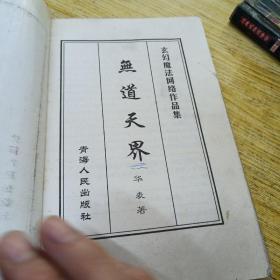 玄幻魔法网络作品集
無道天界
华表著
青海人民出版社